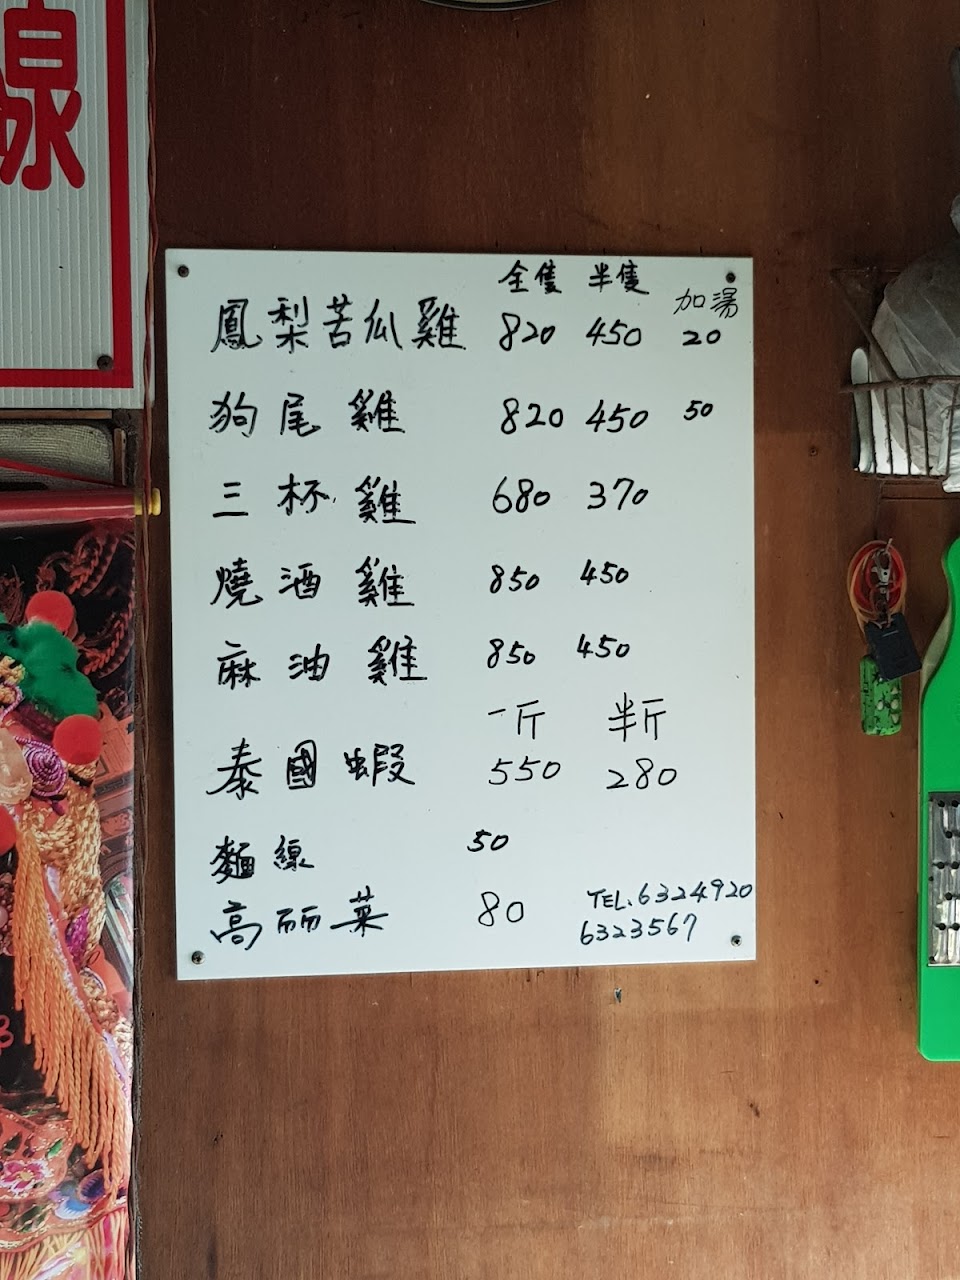 線
全隻 半隻 加湯
鳳梨苦瓜雞 820 450 20
狗尾雞 820 450 50
三杯雞 680 370
燒酒雞 850 450
麻油雞 850 450
一斤 半斤
泰國蝦 550 280
麵線 50
高丽菜 80
TEL.6324920
6323567